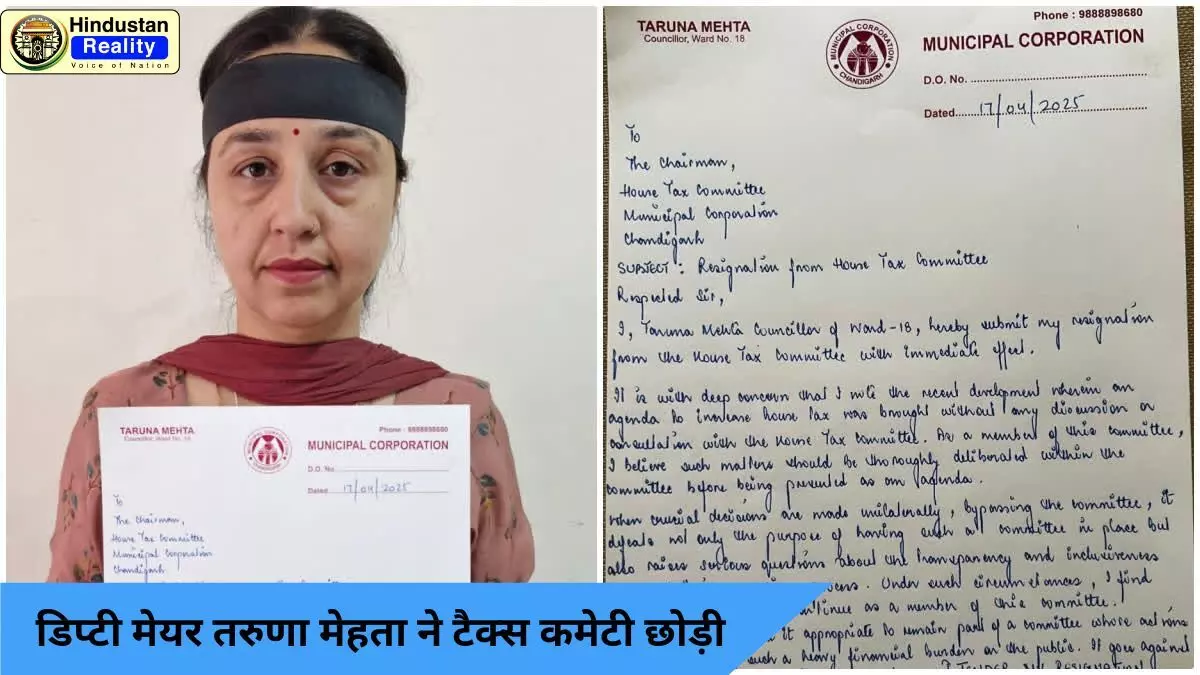 Hindustan
Reality
Voice of Nation
TARUNA MEHTA
Councillor, Ward No. 18
Phone : 9888898680
MUNICIPAL CORPORATION
D.O. No.
Dated 17/04/2025
To
The Chairman,
House Tax Committee
Municipal Corporation
Chandigarh
TARUNA MEHTA
Councillor, Ward No. 18
MUNICIPAL CORPORATION
CHANDIGARH
Phone : 9888898680
MUNICIPAL CORPORATION
D.O. No.
Dated 17/04/2025
To
The Chairman,
House Tax Committee
Municipal Corporation
Chandigarh
SUBJECT : Resignation from House Tax Committee
Respected Sir,
I, Taruna Mehta Councillor of Ward-18, hereby submit my resignation
from the House Tax Committee with immediate effect.
It is with deep concern that I note the recent development wherein an
agenda to increase house tax was brought without any discussion or
consultation with the House Tax Committee. As a member of this committee,
I believe such matters should be thoroughly deliberated within the
committee before being presented as an agenda.
When crucial decisions are made unilaterally, bypassing the committee, it
defeats not only the purpose of having such a committee in place but
also raises serious questions about the transparency and inclusiveness
. Under such circumstances, I find
as a member of this committee.
it appropriate to remain part of a committee whose actions
such a heavy financial burden on the public. It goes against
डिप्टी मेयर तरुणा मेहता ने टैक्स कमेटी छोड़ी